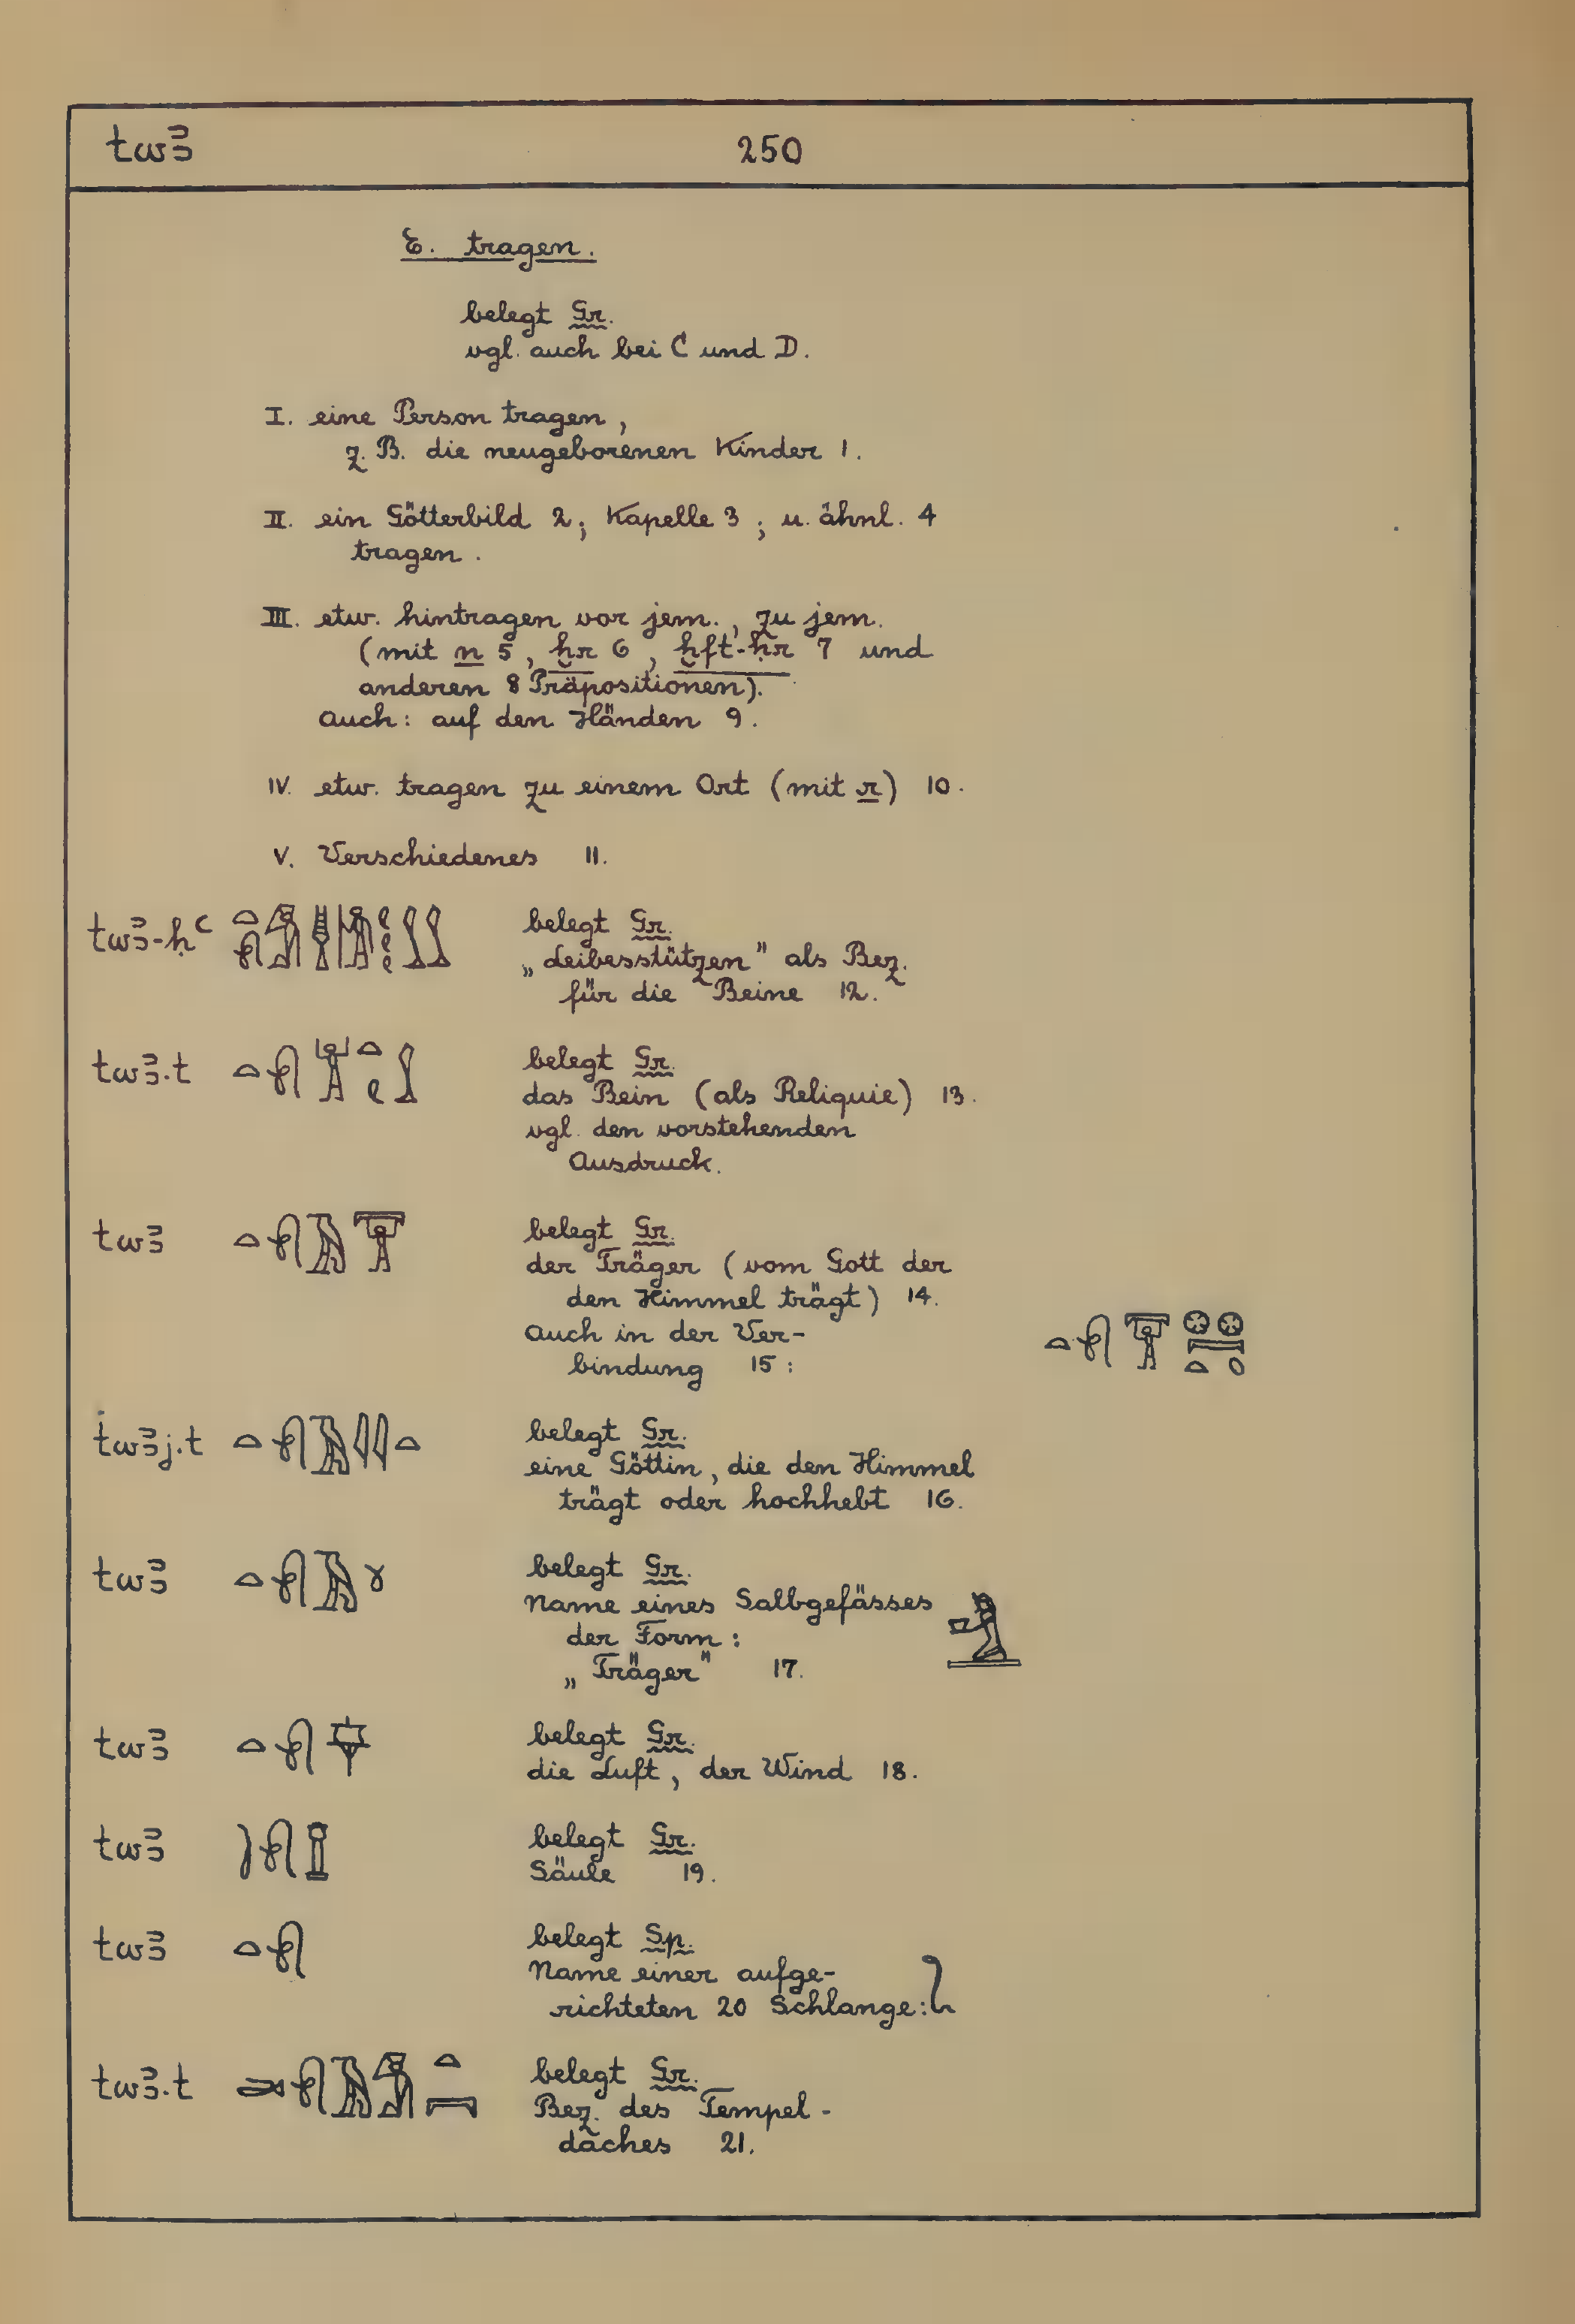 twꜣ 250
E. tragen.
belegt Gr.
vgl. auch bei C und D.
I. eine Person tragen,
z. B. die neugeborenen Kinder 1.
II. ein Götterbild 2; Kapelle 3; u. ähnl. 4
tragen.
III. etw. hintragen vor jem., zu jem.
(mit n 5, ḫr 6, ḫft-ḥr 7 und
anderen 8 Präpositionen).
Auch: auf den Händen 9.
IV. etw. tragen zu einem Ort (mit r) 10.
V. Verschiedenes 11.
twꜣ-ḥꜥ belegt Gr.
„Leibesstützen" als Bez.
für die Beine 12.
twꜣ.t belegt Gr.
das Bein (als Reliquie) 13.
vgl. den vorstehenden
Ausdruck.
twꜣ belegt Gr.
der Träger (vom Gott der
den Himmel trägt) 14.
Auch in der Ver-
bindung 15:
twꜣj.t belegt Gr.
eine Göttin, die den Himmel
trägt oder hochhebt 16.
twꜣ belegt Gr.
Name eines Salbgefässes
der Form:
„Träger" 17.
twꜣ belegt Gr.
die Luft, der Wind 18.
twꜣ belegt Gr.
Säule 19.
twꜣ belegt Sp.
Name einer aufge-
richteten 20 Schlange:
twꜣ.t belegt Gr.
Bez. des Tempel-
daches 21.